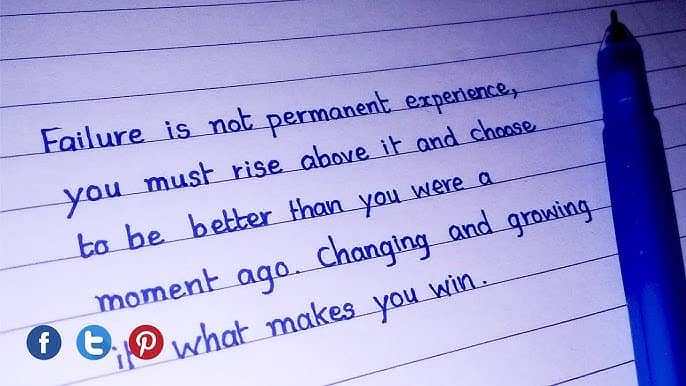 Failure is not permanent experience,
you must rise above it and choose
to be better than you were a
moment ago. Changing and growing
what makes you win.